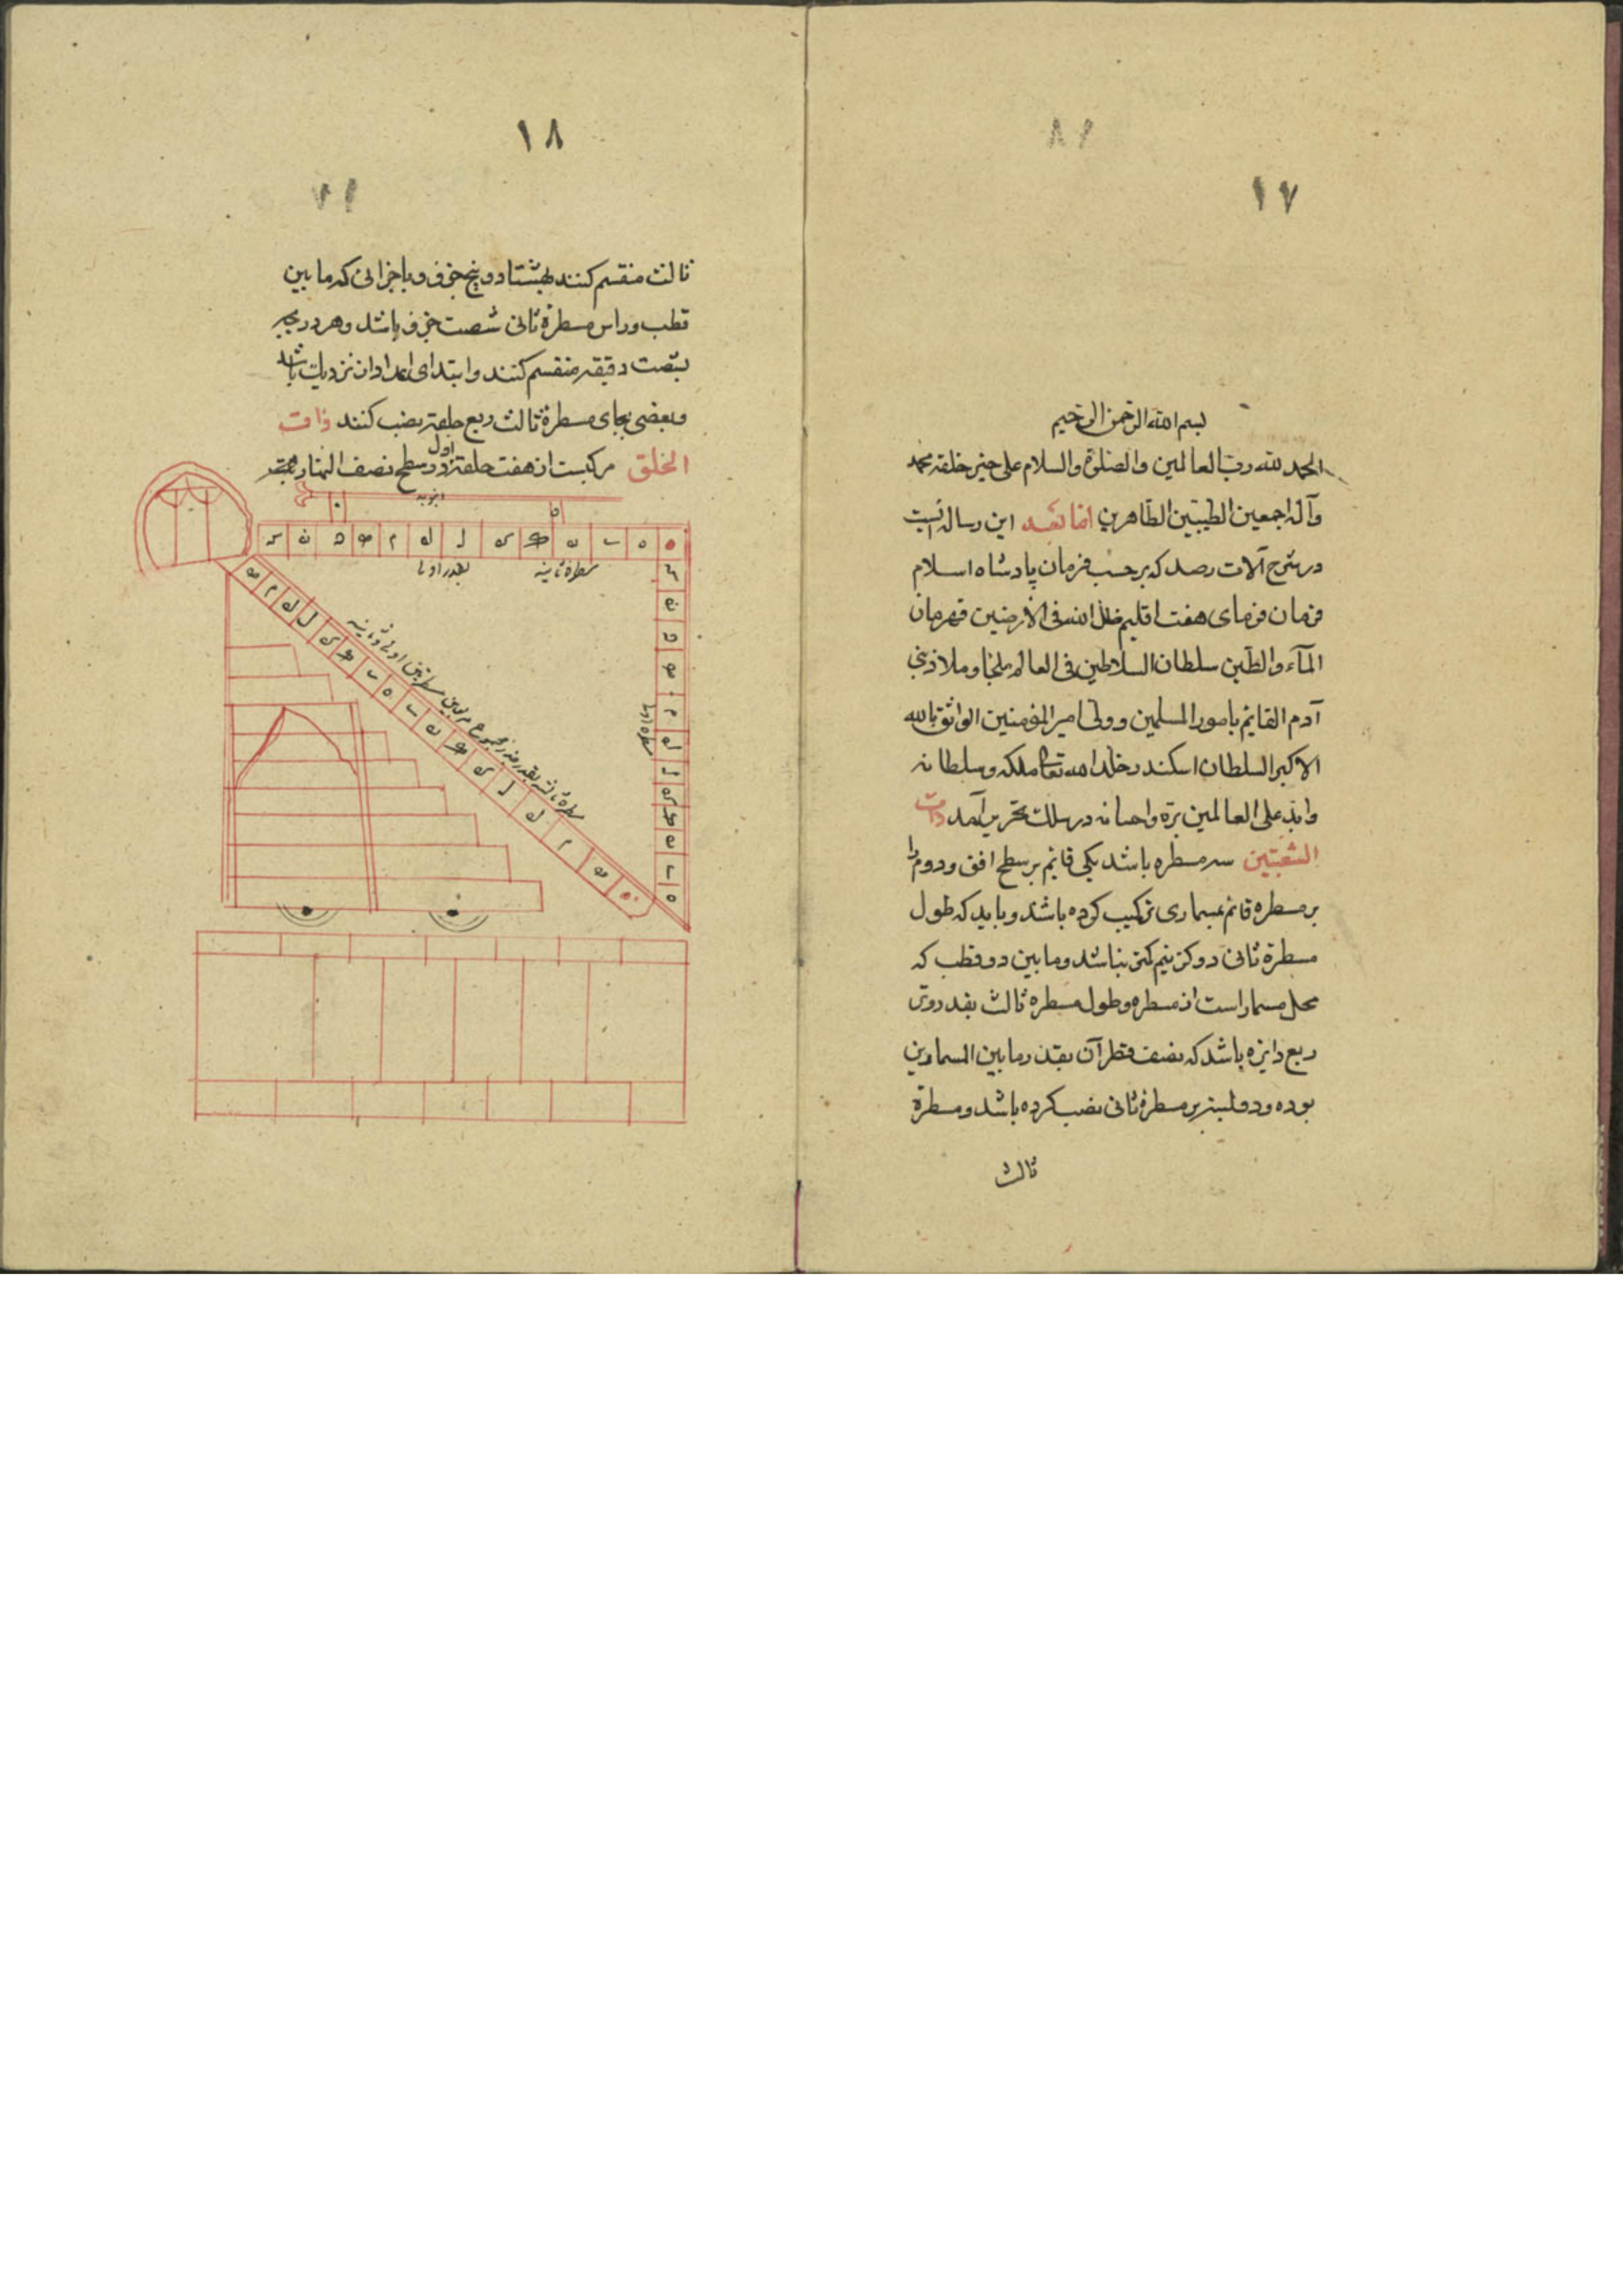 ١٧
بسم الله الرحمن الرحيم
الحمد لله رب العالمين والصلوة والسلام على خير خلقه محمد
وآله اجمعين الطيبين الطاهرين اما بعد اين رساله ايست
در شرح آلات رصد كه بر حسب فرمان پادشاه اسلام
فرمان فرماى هفت اقليم ظل الله فى الارضين قهرمان
المآء والطين سلطان السلاطين فى العالم ملجا وملاذ بنى
آدم القايم بامور المسلمين وولى امير المؤمنين الواثق بالله
الاكبر السلطان اسكندر خلد الله تعا ملكه وسلطانه
وابد على العالمين بره واحسانه در سلك تحرير آمد ذات
الشعبتين سه مسطره باشد يكى قايم بر سطح افق ودوم را
بر مسطره قايم بمسمارى تركيب كرده باشند وبايد كه طول
مسطرة ثانى دو كز نيم كمتر نباشد وما بين دو قطب كه
محل مسمار است از مسطره وطول مسطره ثالث بقدر وتر
ربع دايره باشد كه نصف قطر آن بقدر ما بين المسمارين
بوده ودو لبنه بر مسطرة ثانى نصب كرده باشد ومسطرة
ثالث
١٨
ثالث منقسم كنند بهشتاد وپنج جزؤ وباجزائى كه ما بين
قطب وراس مسطرة ثانى شصت جزؤ باشد وهر درجه
بشصت دقيقه منقسم كنند وابتداى اعداد از نزديك باشد
وبعضى بجاى مسطرة ثالث ربع حلقه نصب كنند ذات
الحلق مركبست از هفت حلقه اول در سطح نصف النهار
مسطرة ثانيه
بقدر اولى
مسطرة اولى